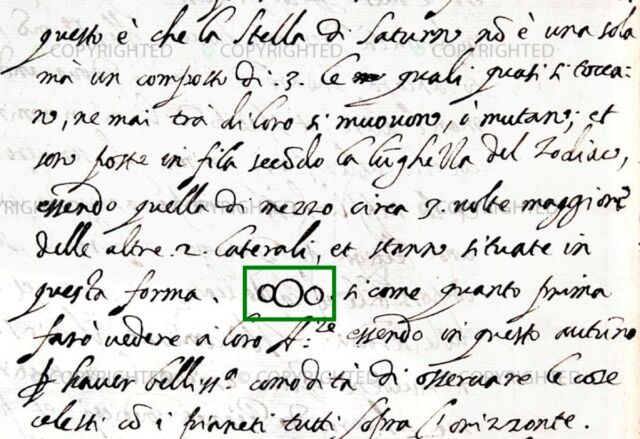 questo è che la stella di Saturno nõ è una sola
mà un composto di .3. le quali quasi si tocca-
no, ne mai trà di loro si muovono, ò mutano; et
son poste in fila secõdo la lũghezza del Zodiaco,
essendo quella di mezzo circa 3. volte maggiore
delle altre .2. laterali, et stanno situate in
questa forma. si come quanto prima
farò vedere à loro A.ze essendo in questo autũno
ꝑ haver belliss.a comodità di osservare le cose
celesti cõ i pianeti tutti sopra l'orizonte.